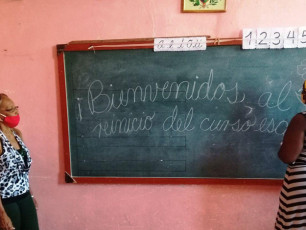 1 2 3 4 5
¡Bienvenidos, al
reinicio del curso esc